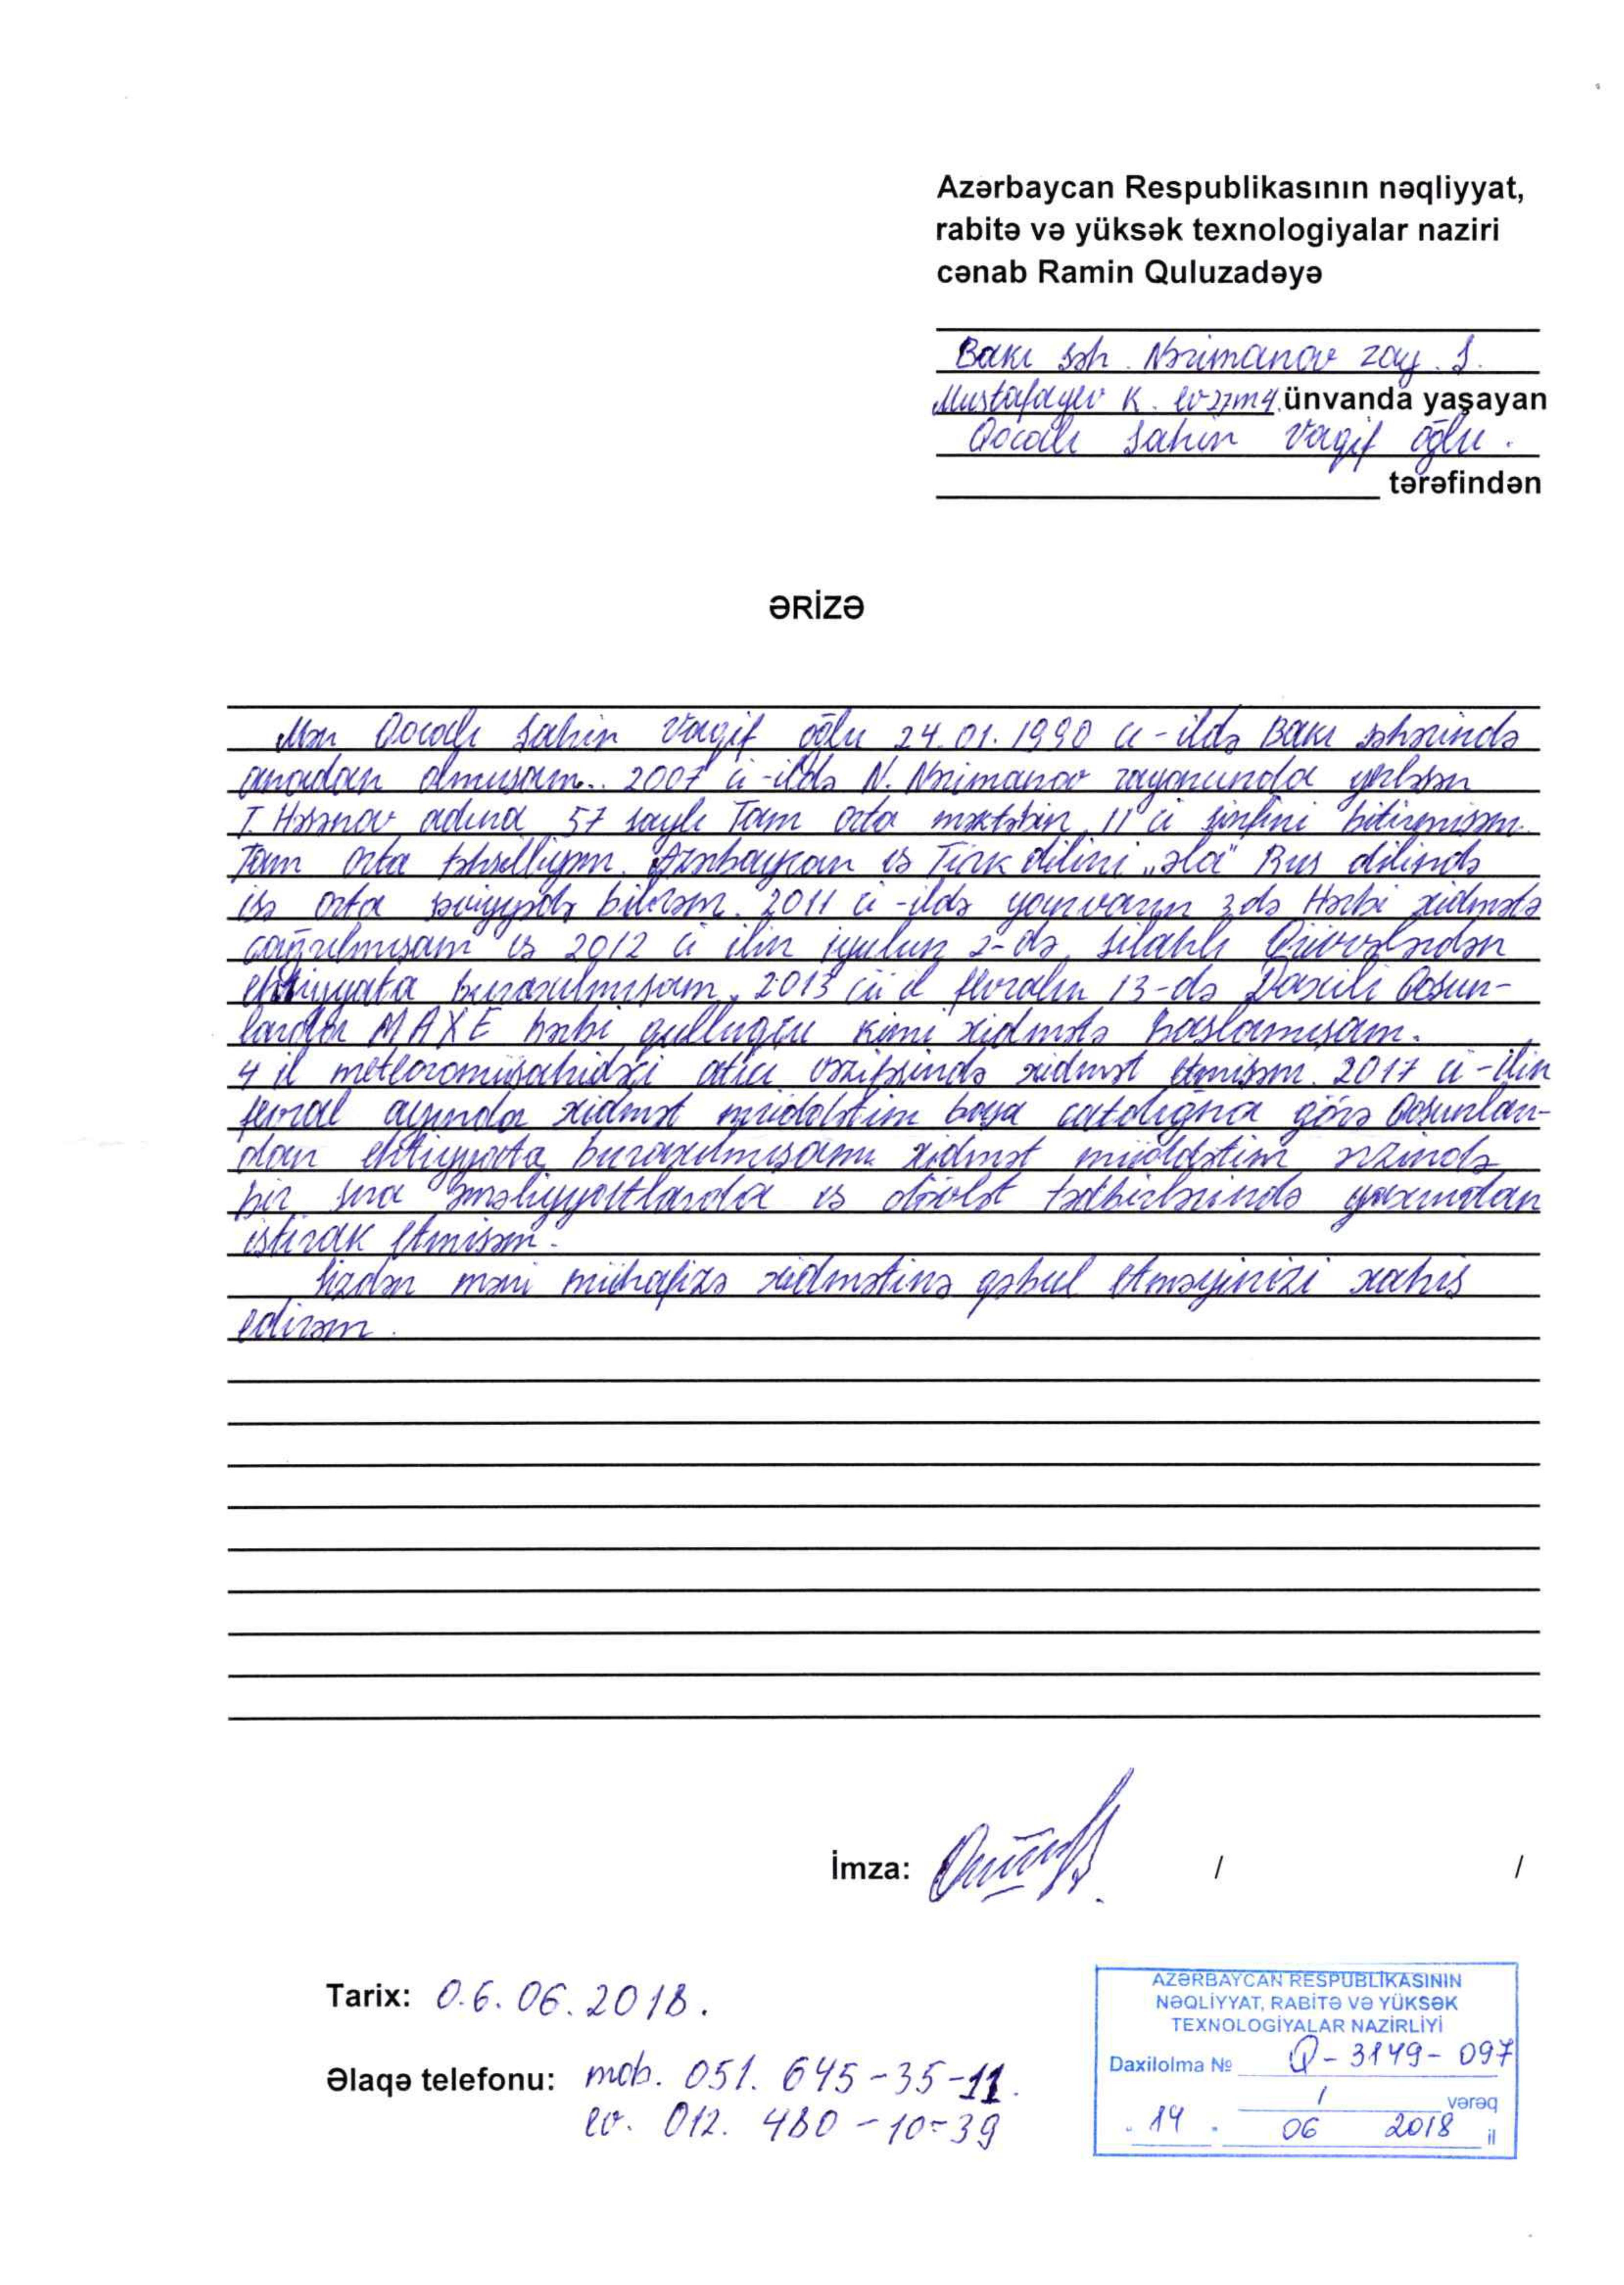 Azərbaycan Respublikasının nəqliyyat,
rabitə və yüksək texnologiyalar naziri
cənab Ramin Quluzadəyə
Bakı şəh. Nərimanov ray. Ş.
Mustafayev K. ev 27 m 4. ünvanda yaşayan
Qocalı Şahin Vaqif oğlu.
tərəfindən
ƏRİZƏ
Mən Qocalı Şahin Vaqif oğlu 24.01.1990 cı-ildə Bakı şəhərində
anadan olmuşam. 2007 ci-ildə N. Nərimanov rayonunda yerləşən
T. Həsənov adına 57 saylı Tam orta məktəbin 11 ci sinfini bitirmişəm.
Tam orta təhsilliyəm. Azərbaycan və Türk dilini „əla" Rus dilində
isə orta səviyyədə bilirəm. 2011 ci-ildə yaynvarın 3 də Hərbi xidmətə
çağrılmışam və 2012 ci ilin iyulun 2-də silahlı Qüvvələrdən
ehtiyyata buraxılmışam. 2013 cü il fevralın 13-də Daxili Qoşun-
lardın MAXE hərbi qulluqçu kimi xidmətə başlamışam.
4 il meteoromüşahidəçi atıcı vəzifəsində xidmət etmişəm. 2017 ci-ilin
fevral ayında xidmət müddətim başa çatdığna görə Qoşunlar-
dan ehtiyyata buraxılmışam. Xidmət müddətim ərzində
bir sıra əməliyyatlarda və dövlət tədbirlərində yaxından
iştirak etmişəm.
Sizdən məni mühafizə xidmətinə qəbul etməyinizi xahiş
edirəm.
İmza: / /
Tarix: 0.6.06.2018.
Əlaqə telefonu: mob. 051. 645-35-11.
ev. 012. 480-10-39
AZƏRBAYCAN RESPUBLİKASININ
NƏQLİYYAT, RABİTƏ VƏ YÜKSƏK
TEXNOLOGİYALAR NAZİRLİYİ
Daxilolma № Q-3149-097
1 vərəq
. 14 . 06 2018 il